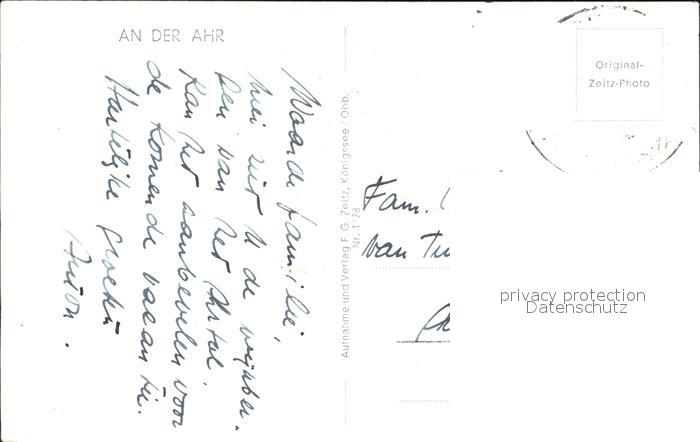 AN DER AHR
Waarde familie,
hier ziet U de wijnber-
gen van het Ahrtal.
Kan het aanbevelen voor
de komende vacantie.
Hartelijke groeten
Anton.
Aufnahme und Verlag F. G. Zeitz, Königssee / Obb.
Nr. 1178
Original-
Zeitz-Photo
Fam.
van
privacy protection
Datenschutz